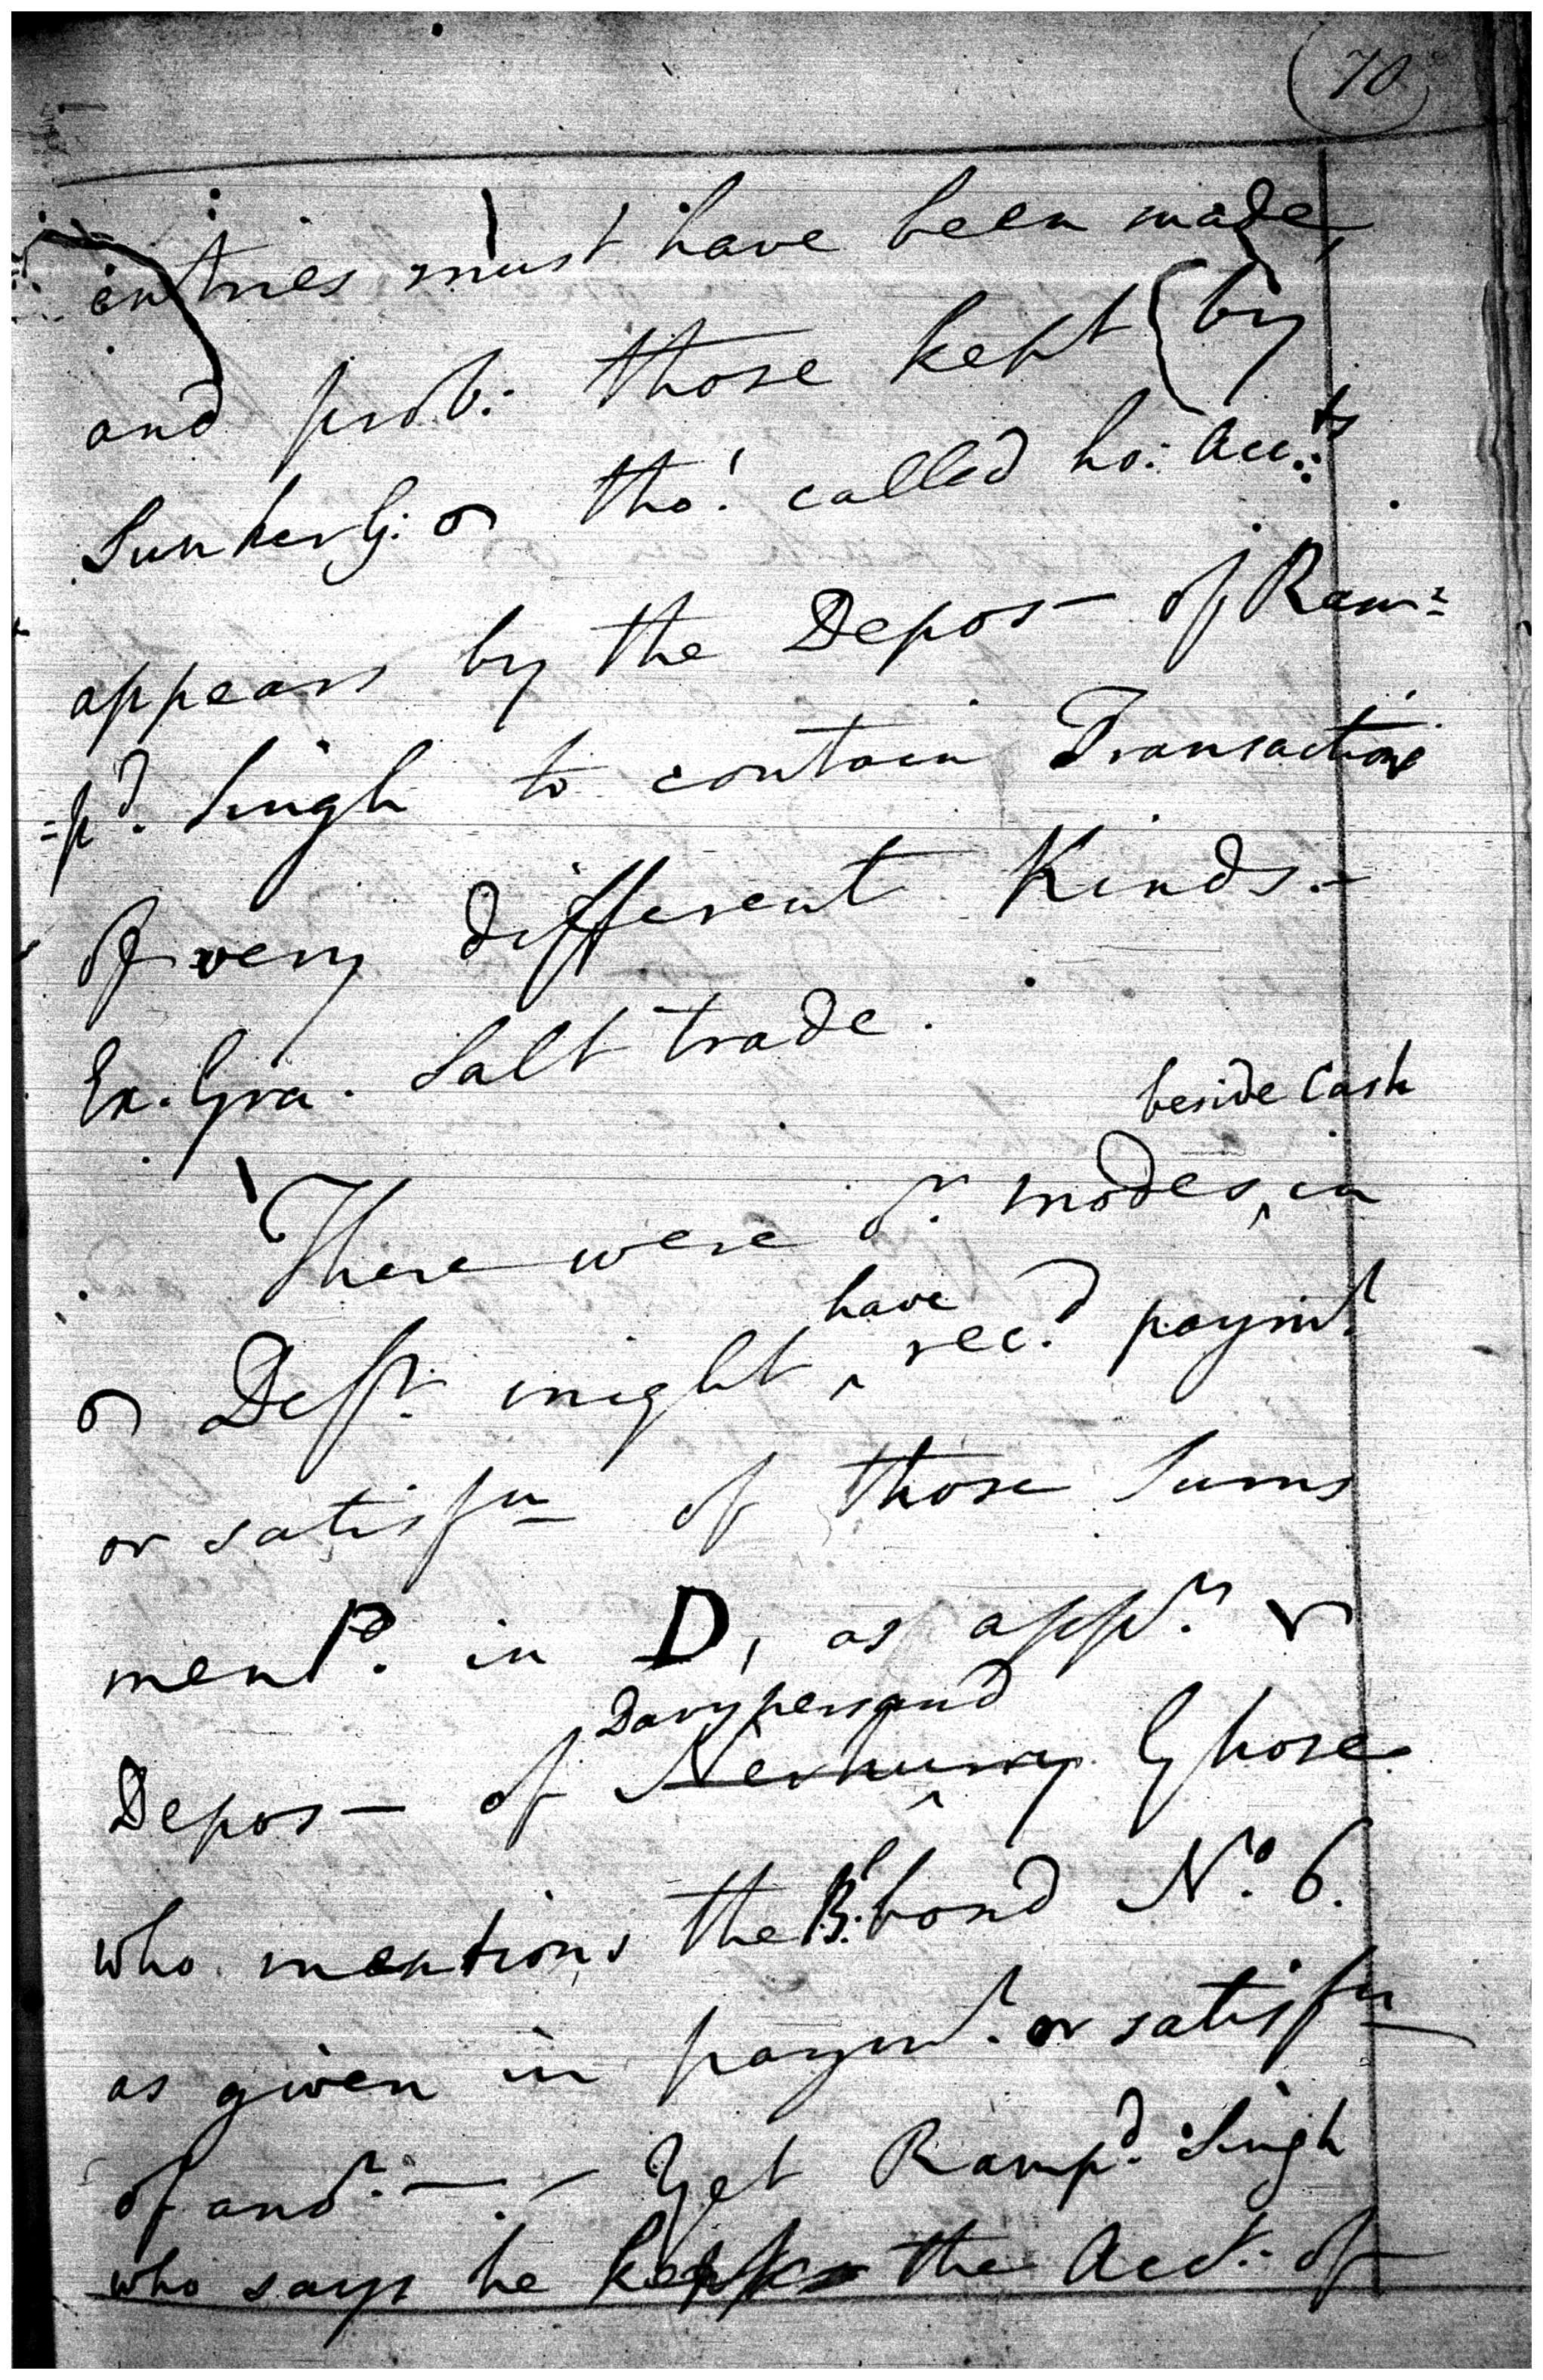 70
entries must have been made,
and prob: those kept by
Sunker G: tho' called ho: Acc.ts
appears by the Depos– of Ram=
=pd. Singh to contain Transactions
of very different Kinds.–
Ex. Gra. Salt trade.
beside Cash
There were or. modes, in
have
Deft. might ‸ rec.d paymt.
or satisfn of those Sums
mend. in D, as appr.
Davypersaud
Depos– of Nerhurry Ghose
who mentions the B. bond No. 6.
as given in paymt. or satisfn
of anor. — . – Yet Rampd. Singh
who says he the Acct. of